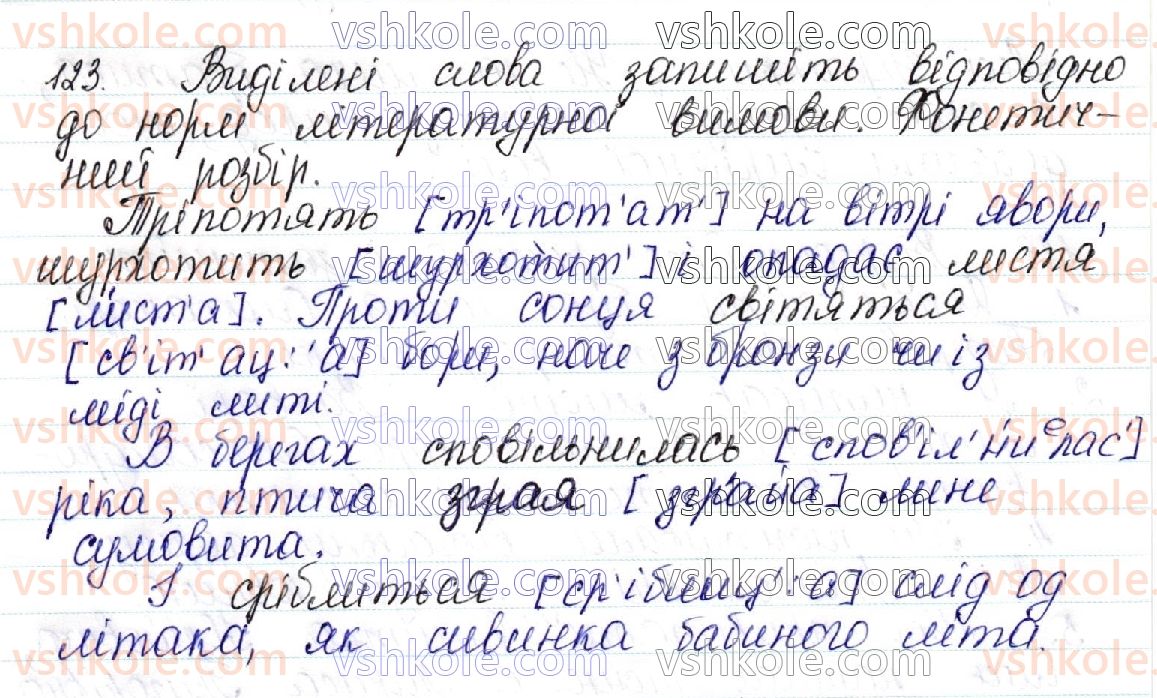 123. Виділені слова запишіть відповідно
до норм літературної вимови. Фонетич-
ний розбір.
Тріпотять [тр'іпот'ат'] на вітрі явори,
шурхотить [шурхотит'] і опадає листя
[лист'а]. Проти сонця світяться
[св'іт'ац':а] бори, наче з бронзи чи із
міді литі.
В берегах сповільнилась [спов'іл'ниᵉлас']
ріка, птича зграя [зграйа] лине
сумовита.
І сріблиться [ср'iблиц':а] слід од
літака, як сивинка бабиного літа.